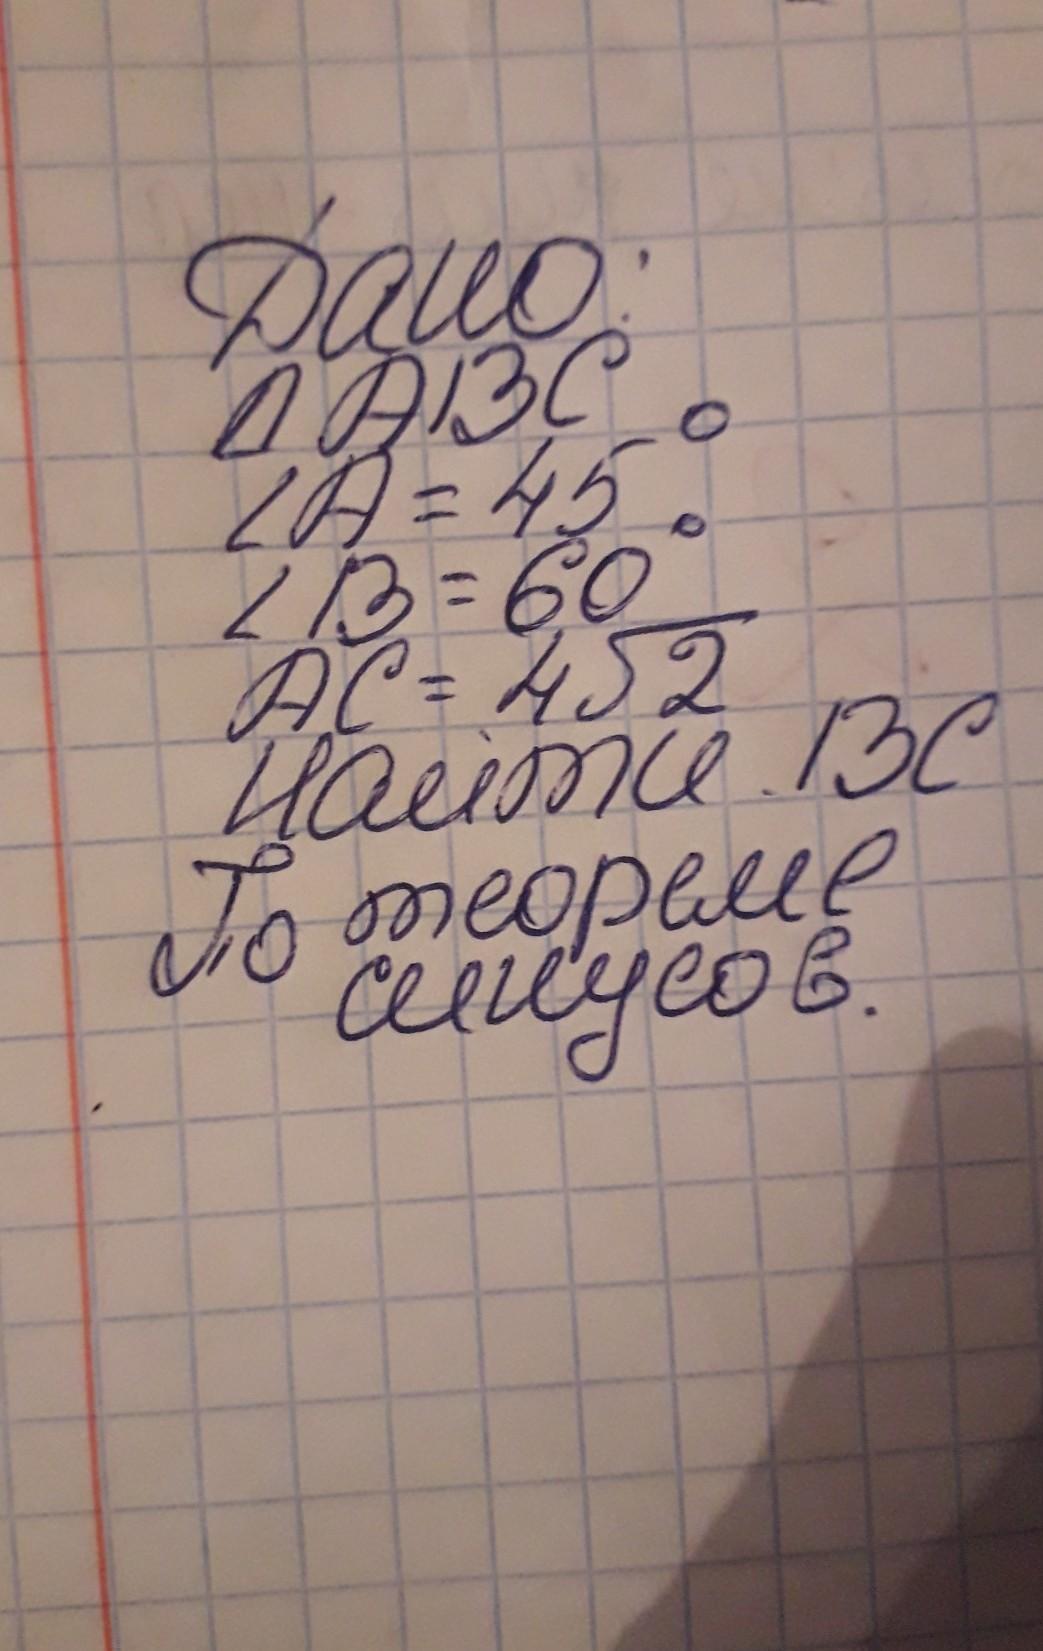 Дано:
Δ ABC
∠A = 45°
∠B = 60°
AC = 4√2
Найти BC
По теореме
синусов.